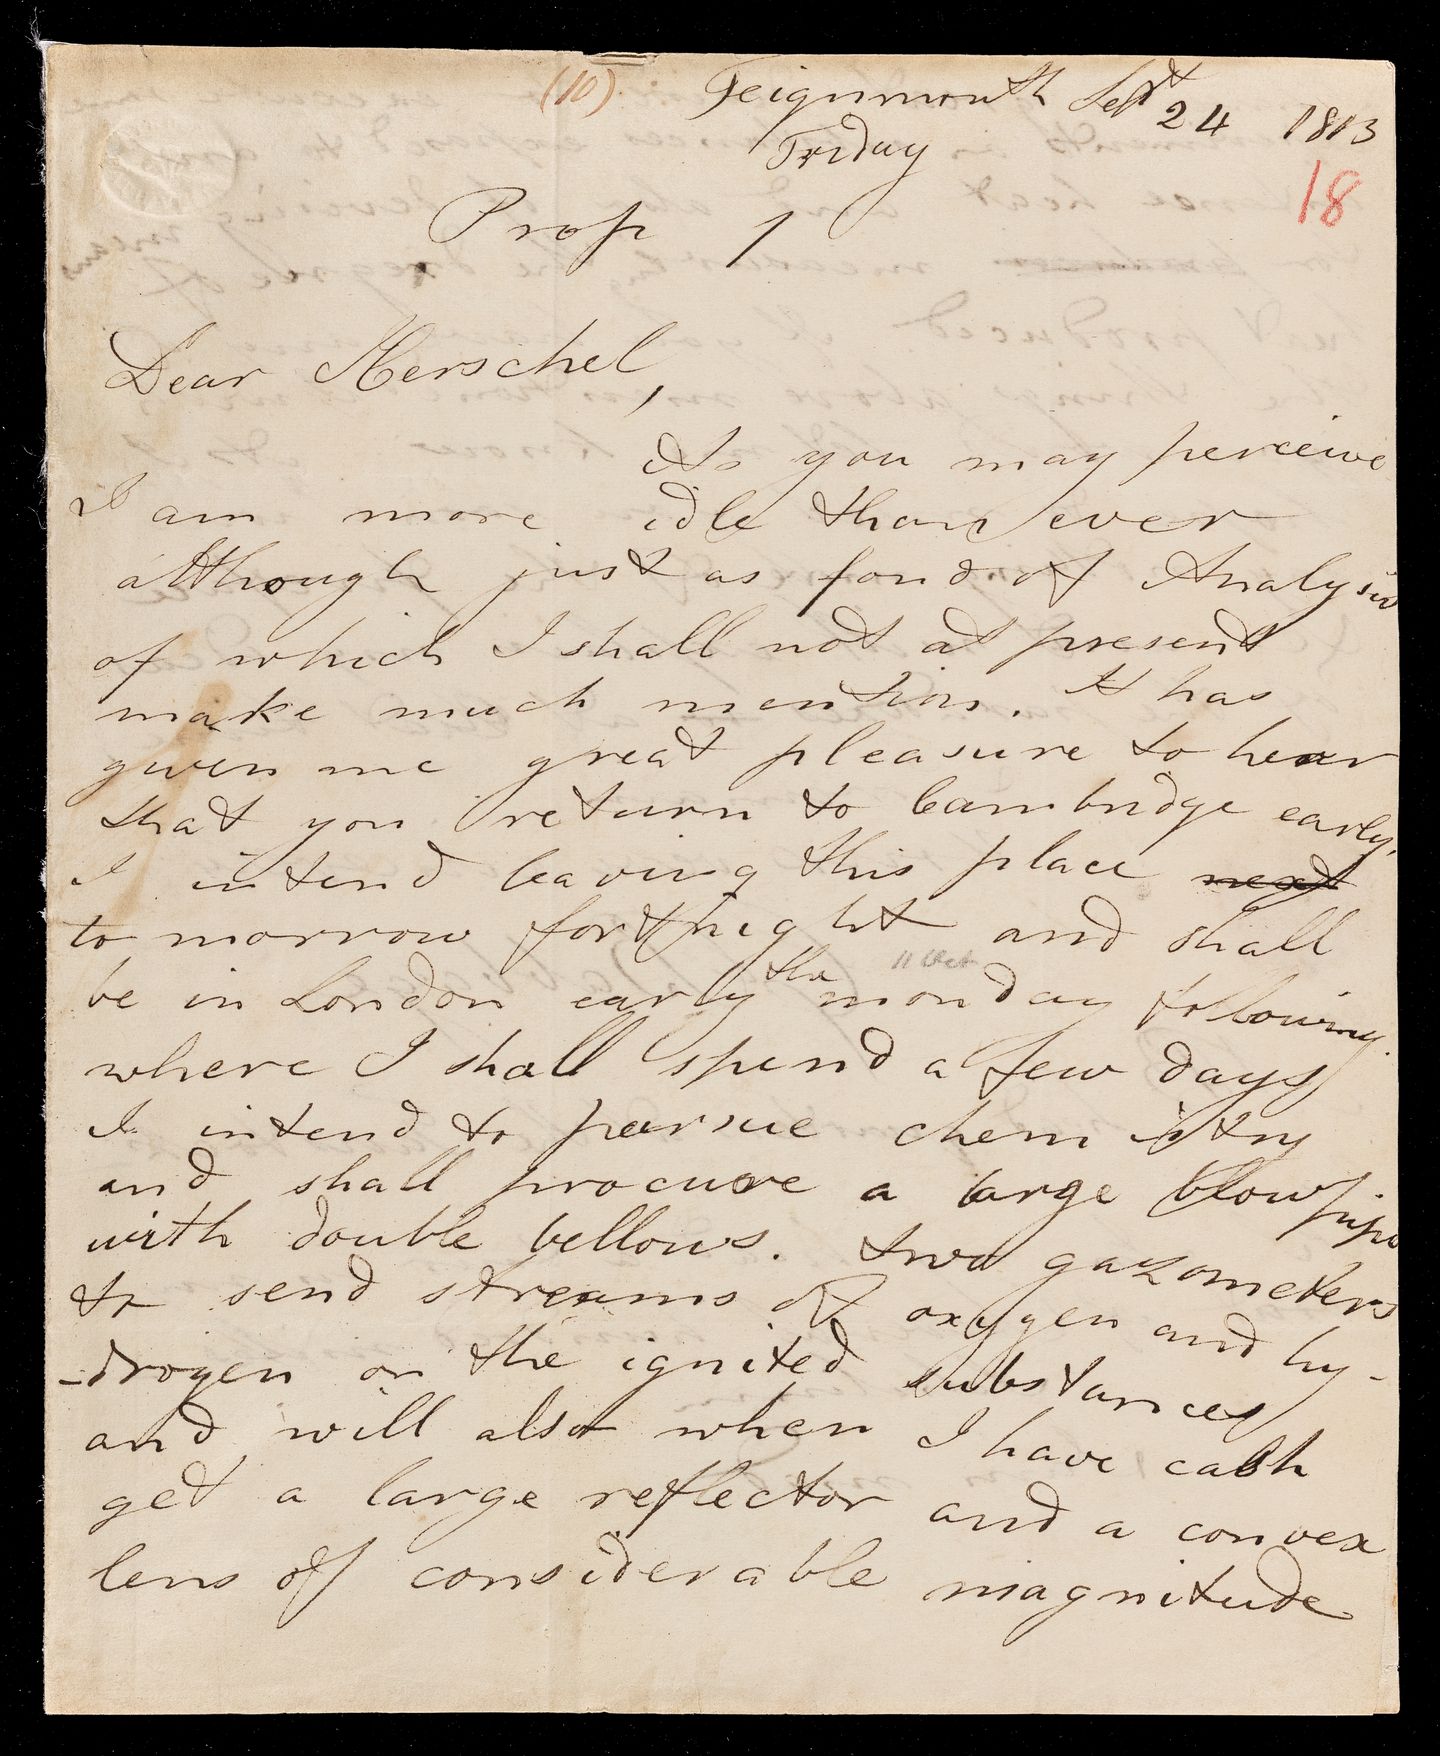 (10). Teignmouth Sept 24 1813
Friday
18
Prop 1
Dear Herschel,
As you may perceive
I am more idle than ever
although just as fond of Analysis
of which I shall not at present
make much mention. It has
given me great pleasure to hear
that you return to Cambridge early.
I intend leaving this place next
to morrow fortnight and shall
11 Oct
be in London early the monday following.
where I shall spend a few days
I intend to persue chemistry
and shall procure a large blowpipe
with double bellows. two gazometers
to send streams of oxygen and hy-
-drogen on the ignited substances
and will also when I have cash
get a large reflector and a convex
lens of considerable magnitude